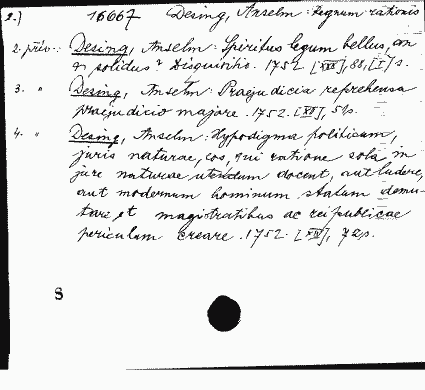 2.) 16667 Desing, Anselm: Regnum rationis
2. priv.: Desing, Anselm: Spiritus legum bellus, an
& solidus? Disquisitio. 1752 [XVI], 88, [I] s.
3. " Desing, Anselm: Praejudicia reprehensa
praejudicio majore. 1752. [XII], 51 s.
4. " Desing, Anselm: Hypodigma politicum,
juris naturae, eos, qui ratione sola in
jure naturae utendum docent, aut ludere,
aut modernum hominum statum demu-
tare et magistratibus ac reipublicae
periculum creare. 1752. [XIV], 72 s.
8